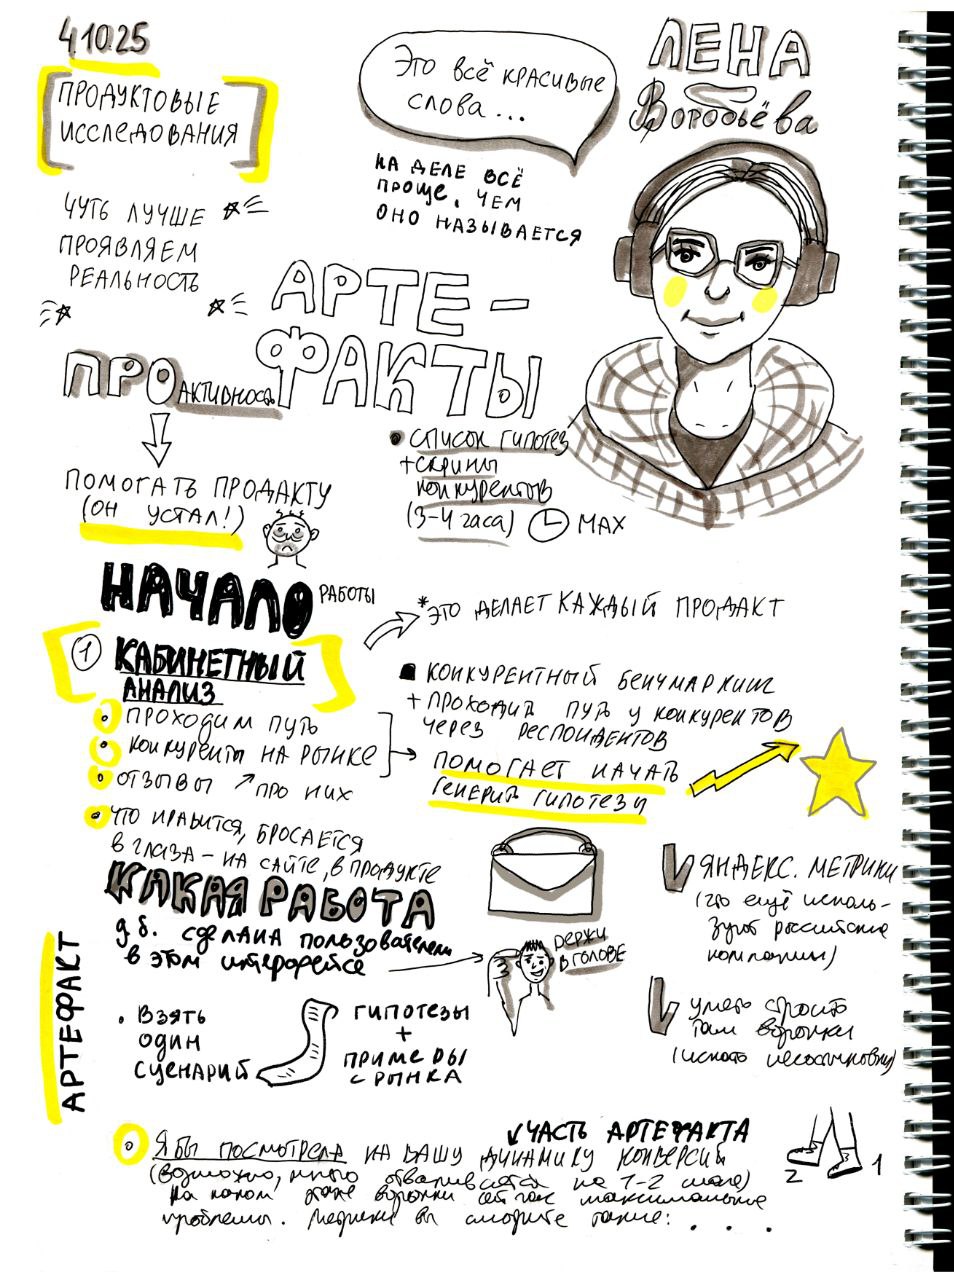 4.10.25
ПРОДУКТОВЫЕ
ИССЛЕДОВАНИЯ
Это всё красивые
слова...
ЛЕНА
Воробьёва
НА ДЕЛЕ ВСЁ
ПРОЩЕ, ЧЕМ
ОНО НАЗЫВАЕТСЯ
ЧУТЬ ЛУЧШЕ
ПРОЯВЛЯЕМ
РЕАЛЬНОСТЬ
АРТЕ-
ФАКТЫ
ПРОАКТИВНОСТЬ
СПИСОК ГИПОТЕЗ
+СКРИНЫ
КОНКУРЕНТОВ
(3-4 часа) MAX
ПОМОГАТЬ ПРОДАКТУ
(ОН УСТАЛ!)
НАЧАЛО РАБОТЫ
*ЭТО ДЕЛАЕТ КАЖДЫЙ ПРОДАКТ
1 КАБИНЕТНЫЙ
АНАЛИЗ
ПРОХОДИМ ПУТЬ
КОНКУРЕНТЫ НА РЫНКЕ
ОТЗЫВЫ ↗ ПРО НИХ
ЧТО НРАВИТСЯ, БРОСАЕТСЯ
В ГЛАЗА - НА САЙТЕ, В ПРОДУКТЕ
КОНКУРЕНТНЫЙ БЕНЧМАРКИНГ
+ ПРОХОДИТЬ ПУТЬ У КОНКУРЕНТОВ
ЧЕРЕЗ РЕСПОНДЕНТОВ
ПОМОГАЕТ НАЧАТЬ
ГЕНЕРИТЬ ГИПОТЕЗЫ
КАКАЯ РАБОТА
д.б. сделана пользователем
в этом интерфейсе
ДЕРЖИ
В ГОЛОВЕ
ЯНДЕКС. МЕТРИКИ
(что ещё исполь-
зуют российские
компании)
уметь строить
там воронки
(искать
АРТЕФАКТ
• ВЗЯТЬ
ОДИН
СЦЕНАРИЙ
ГИПОТЕЗЫ
+
ПРИМЕРЫ
С РЫНКА
↙ЧАСТЬ АРТЕФАКТА
Я БЫ ПОСМОТРЕЛА НА ВАШУ ДИНАМИКУ КОНВЕРСИЙ
(возможно, много отваливается на 1-2 шаге)
На каком этапе воронки сейчас максимальные
проблемы. Метрики вы смотрите такие: . . . .
2 1